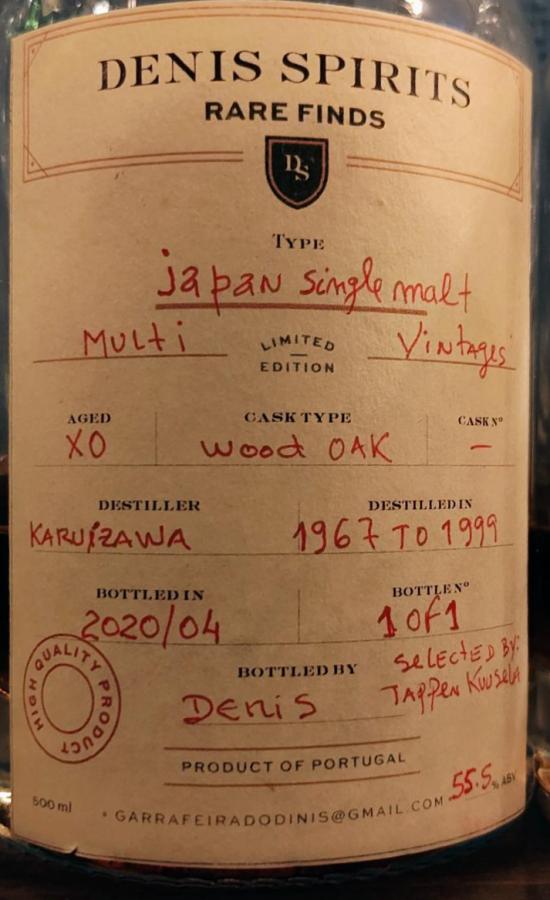 DENIS SPIRITS
RARE FINDS
DS
TYPE
Japan single malt
Multi LIMITED EDITION Vintages
AGED CASK TYPE CASK Nº
XO Wood OAK –
DESTILLER DESTILLED IN
KARUIZAWA 1967 TO 1999
BOTTLED IN BOTTLE Nº
2020/04 1 OF 1
HIGH QUALITY PRODUCT
BOTTLED BY
Denis
SELECTED BY:
TAPPEN Kuusela
PRODUCT OF PORTUGAL
500 ml
GARRAFEIRADODINIS@GMAIL.COM
55.5 % ABV